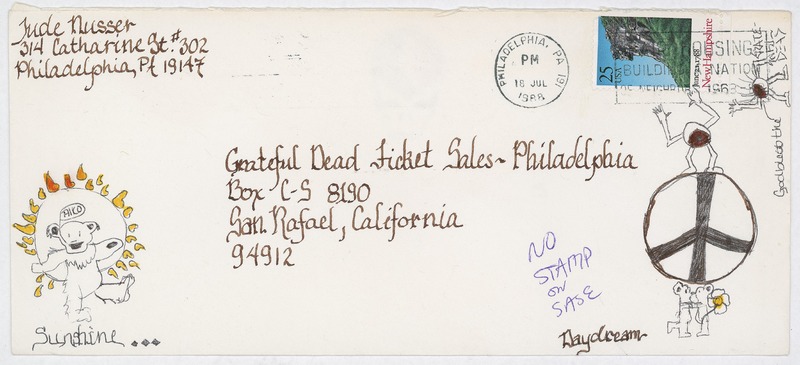 Jude Nusser
314 Catharine St. #302
Philadelphia, PA 19147
PHILADELPHIA, PA 191
PM
18 JUL
1988
25
USA
June 21, 1788
New Hampshire
HOUSING
BUILDING
NATION
Grateful Dead Ticket Sales~Philadelphia
Box C-S 8190
San Rafael, California
94912
NO
STAMP
ON
SASE
Sunshine...
Daydream
God bless the